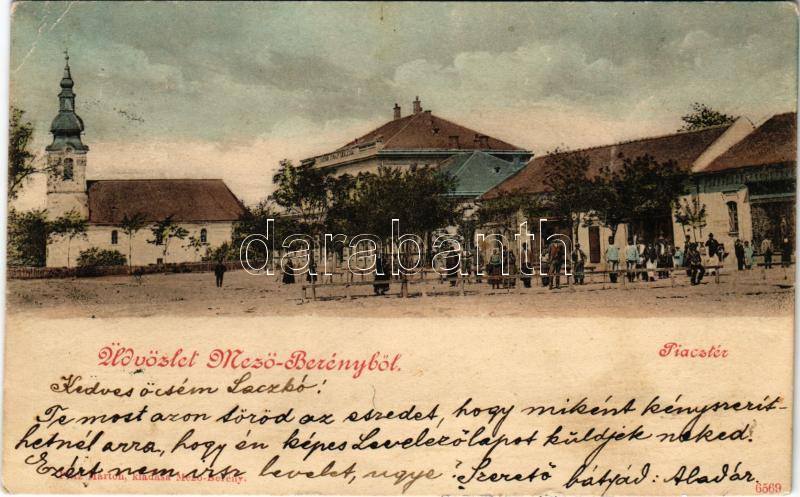 darabanth
Üdvözlet Mező-Berényből.
Piacztér
Kedves öcsém Laczkó!
Te most azon töröd az eszedet, hogy miként kényszerít-
hetnél arra, hogy én képes Levelezőlapot küldjek neked.
Ezért nem irsz levelet, ugye? Szerető bátyád: Aladár.
Márton, kiadása Mező-Berény.
6569